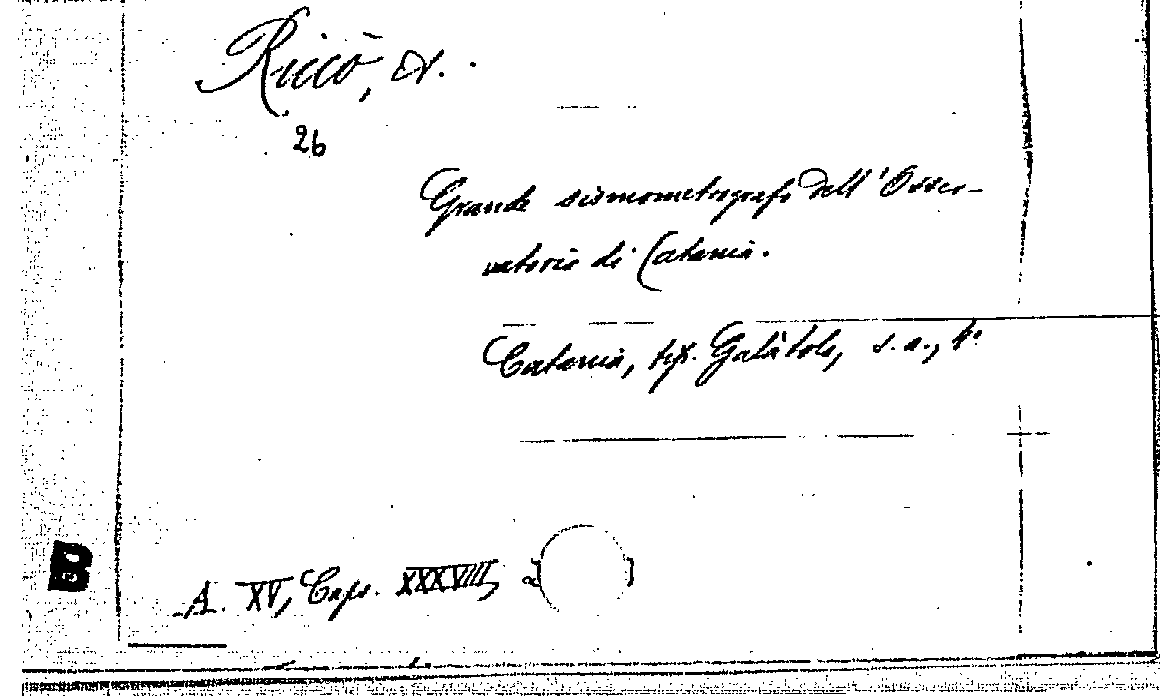 Riccò, A.
26
Grande sismometrografo dell'Osser-
vatorio di Catania.
Catania, tip. Galàtola, s. a., 4°
A. XV, Caps. XXXVIII,
B